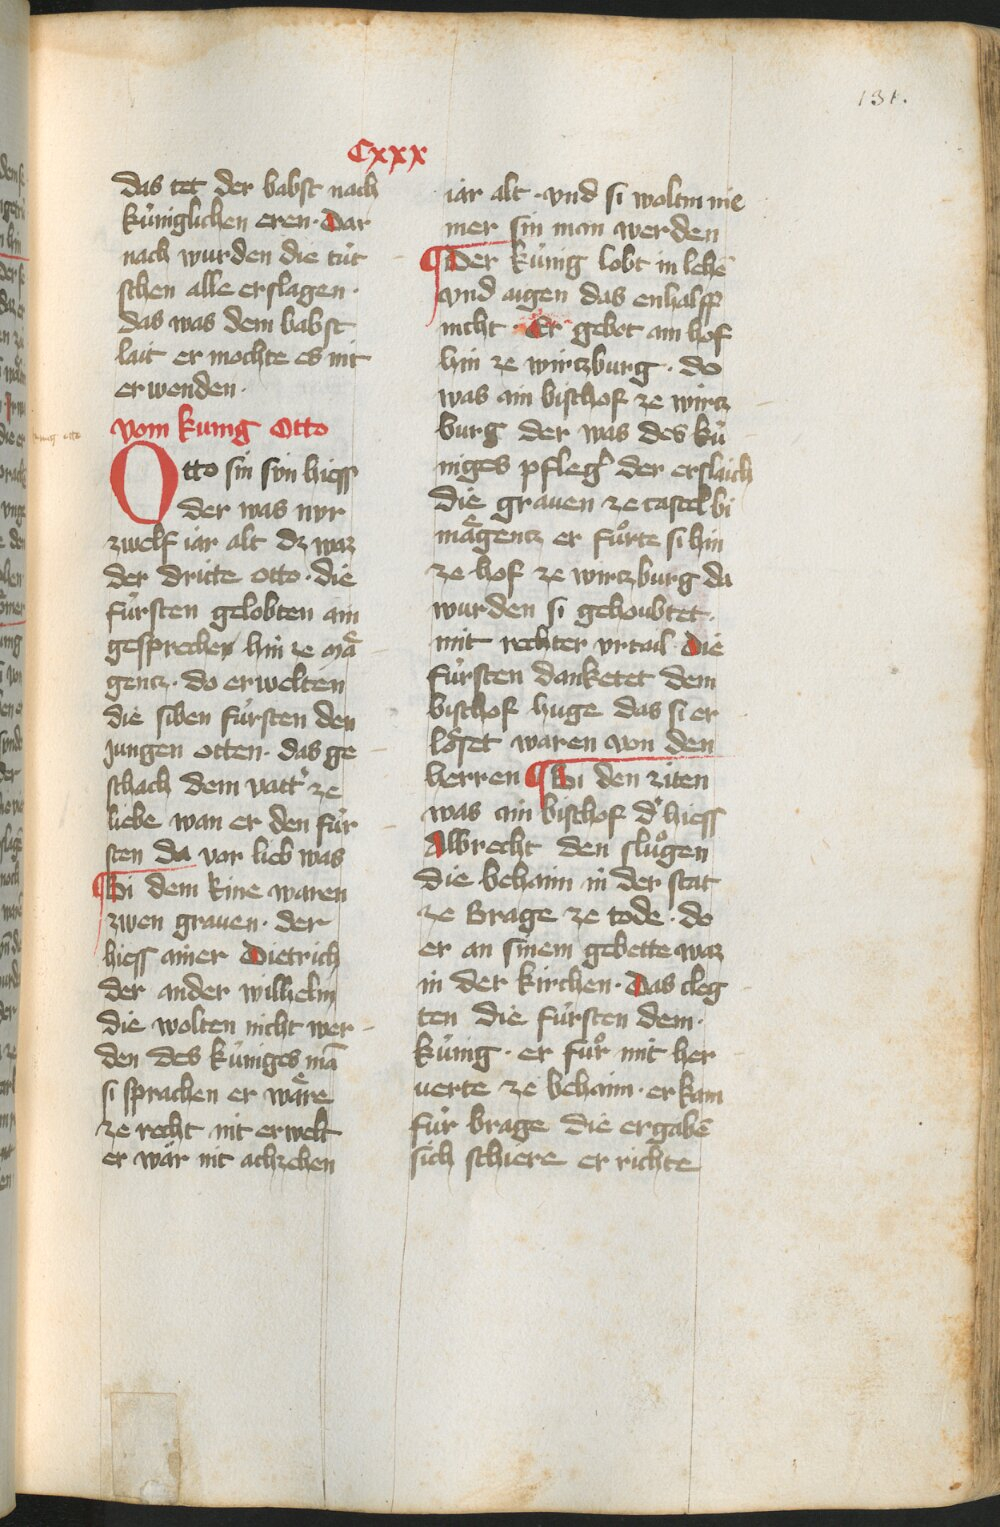 131.
Cxxx
das tet der babst nach
kúniglichen eren · Dar
nach wurden die tút
schen alle erslagen ·
das was dem babst
lait er mochte es nit
erwenden ·
vom kunig Otto
Otto sin svn hiess
der was nvr
zwelf iar alt dz waz
der dritte otto · die
fúrsten gelobten ain
gesprechen hin ze Mä
gencz · do erwelten
die siben fúrsten den
jungen otten · das ge
schach dem vatt' ze
liebe wan er den fúr
sten da vor lieb was
Bi dem kine waren
zwen grauen · der
hiess ainer Dietrich
der ander wilhelm
die wolten nicht wer
den des kúniges mā
si sprachen er wäre
ze recht nit erwelt
er wär nit achzehen
iar alt · vnd si woltin nie
mer sin man werden
Der kúnig lobt in lehē
vnd aigen das enhalff
nicht · Er gebot ain hof
hin ze wirtzburg · do
was ain bischof ze wirtz
burg der was des kú
niges pfleg' der erslaich
die grauen ze castel bi
mägentz er fuͦrte si hin
ze hof ze wirtzburg da
wurden si gehoubtet ·
mit rechter vrtail · Die
fúrsten danketet dem
bischof huge das si er
löset waren von den
herren Bi den ziten
was ain bischof d' hiess
Albrecht den sluͦgen
die behaim in der stat
ze Brage ze tode · do
er an sinem gebette waz
in der kirchen · Das cleg
ten die fúrsten dem ·
kúnig · er fuͦr mit her
uerte ze behaim · er kam
fúr brage die ergabē
sich schiere er richte